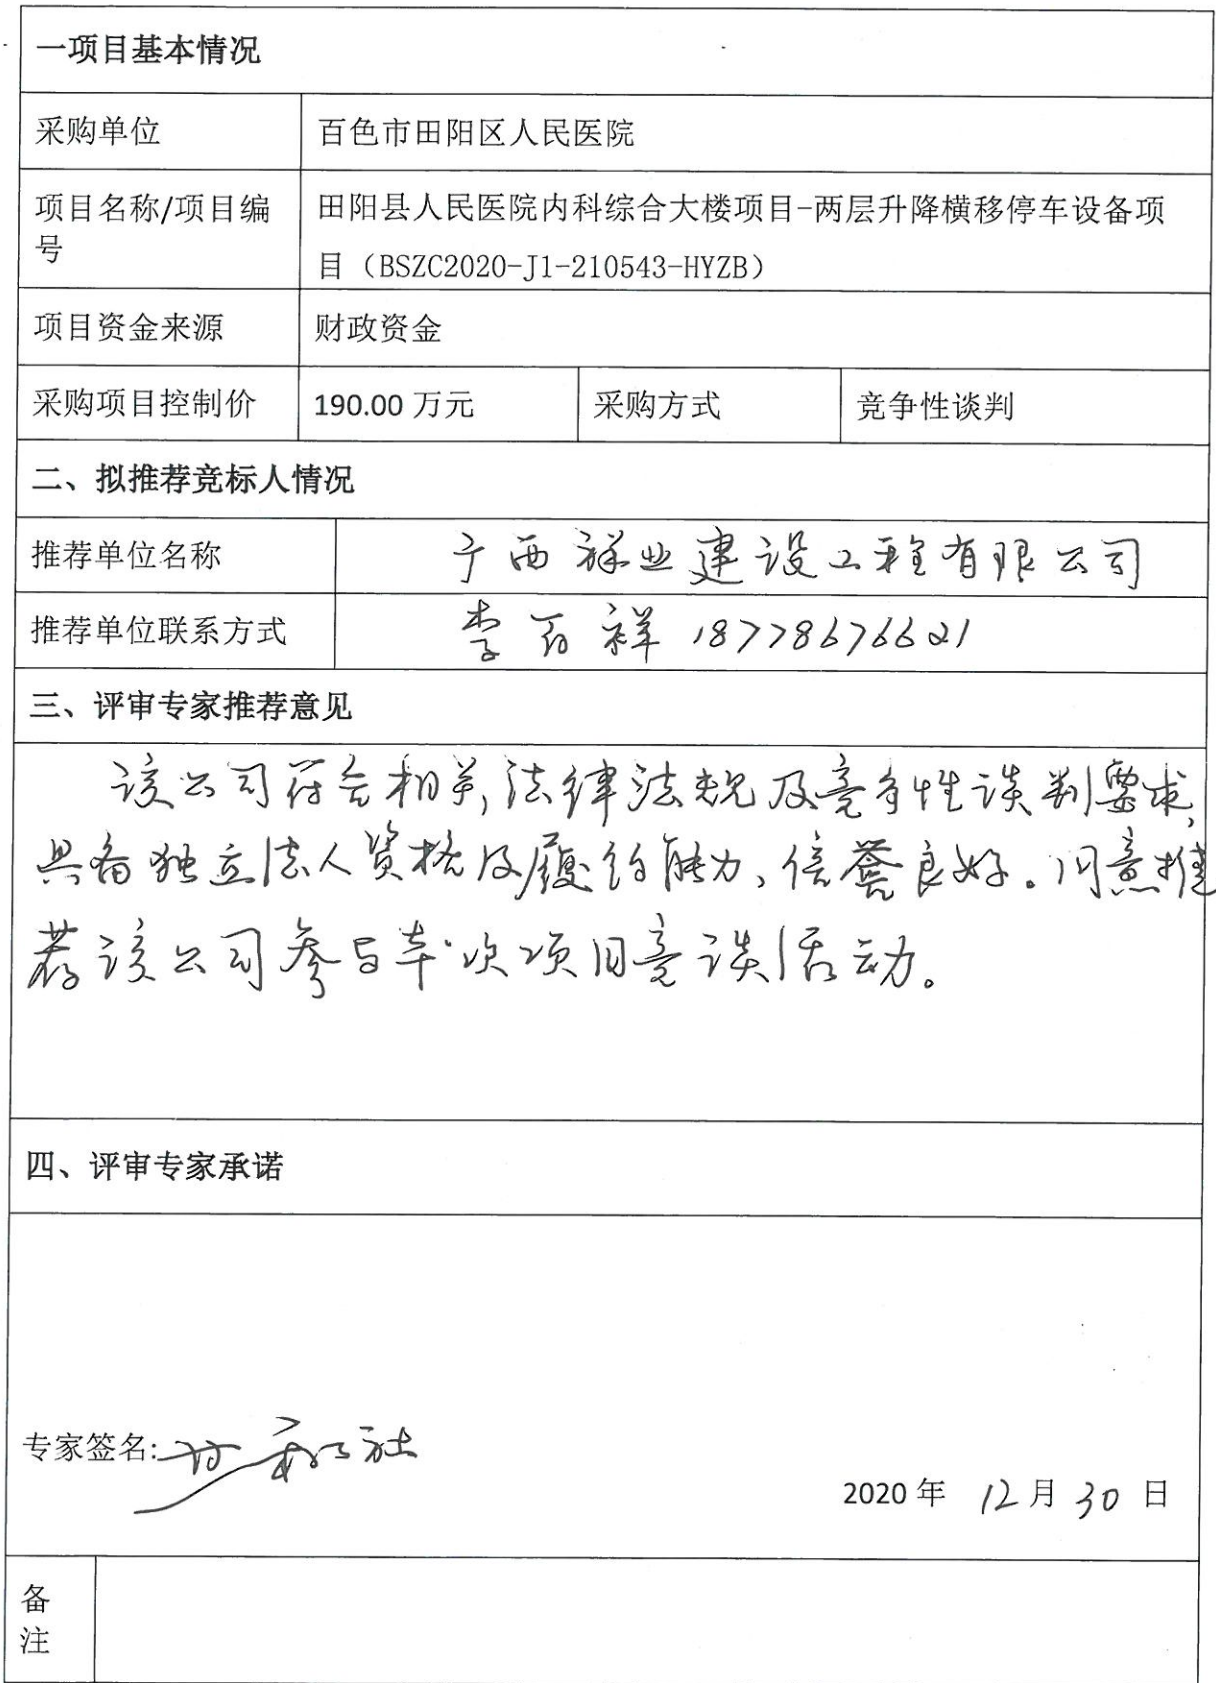 一项目基本情况
采购单位 百色市田阳区人民医院
项目名称/项目编 田阳县人民医院内科综合大楼项目-两层升降横移停车设备项
号 目（BSZC2020-J1-210543-HYZB）
项目资金来源 财政资金
采购项目控制价 190.00 万元 采购方式 竞争性谈判
二、拟推荐竞标人情况
推荐单位名称 广西祥业建设工程有限公司
推荐单位联系方式 李百祥 18778676621
三、评审专家推荐意见
该公司符合相关法律法规及竞争性谈判要求，
具备独立法人资格及履约能力、信誉良好。同意推
荐该公司参与本次项目竞谈活动。
四、评审专家承诺
专家签名:
2020 年 12 月 30 日
备
注